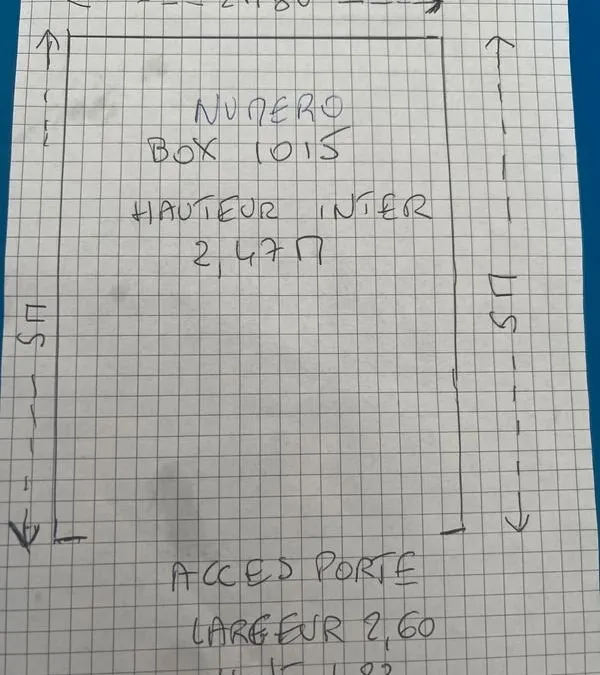 NUMERO
BOX 1015
HAUTEUR INTER
2,47M
5M
5M
ACCES PORTE
LARGEUR 2,60